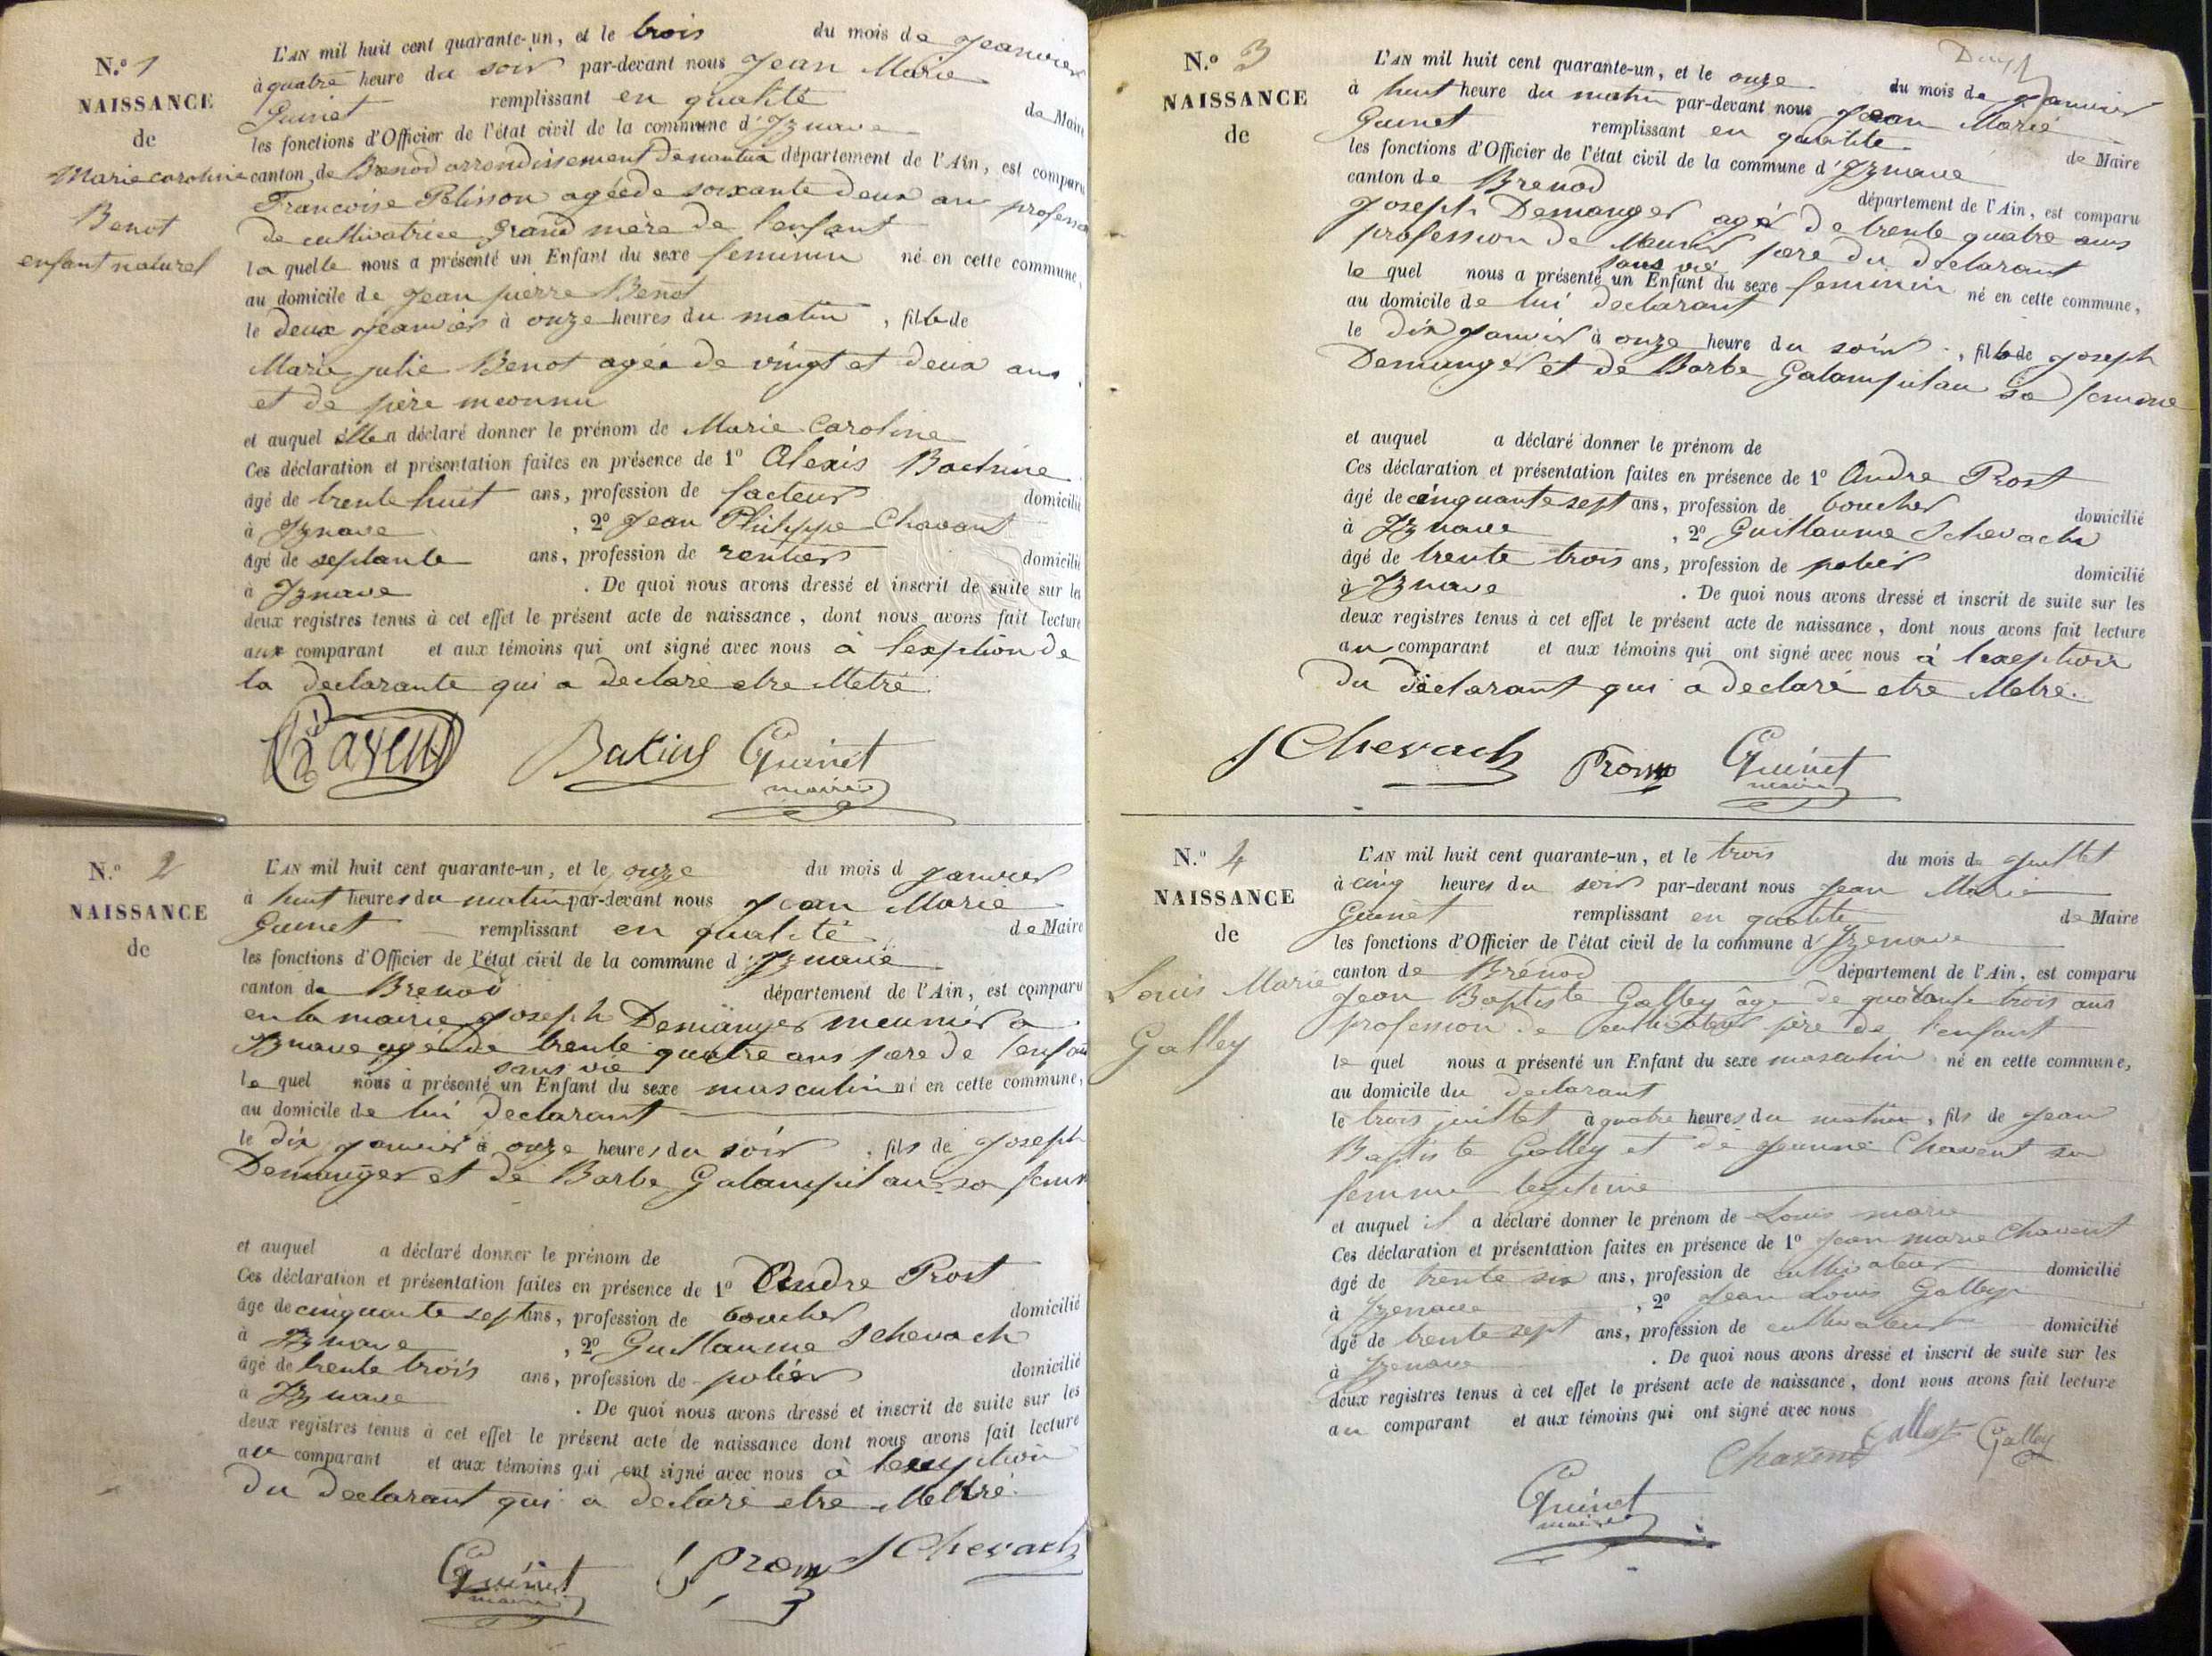 N.º 1
NAISSANCE
de
Marie caroline
Benot
enfant naturel
L'AN mil huit cent quarante-un, et le trois du mois de Jeanvier
à quatre heure du soir par-devant nous Jean Marie
Guinet remplissant en qualité de Maire
les fonctions d'Officier de l'état civil de la commune d'Iznave
canton de Brenod arrondissement de nantua département de l'Ain, est comparu
Francoise Pelisson agée de soixante deux ans profession
de cultivatrice Grand mère de l'enfant
la quelle nous a présenté un Enfant du sexe feminin né en cette commune,
au domicile de Jean pierre Benot
le deux Jeanvier à onze heures du matin, fille de
Marie julie Benot agée de vingt et deux ans
et de père inconnu
et auquel elle a déclaré donner le prénom de Marie Caroline
Ces déclaration et présentation faites en présence de 1º Alexis
âgé de trente huit ans, profession de facteur domicilié
à Iznave, 2º Jean Philippe Chavant
âgé de septante ans, profession de rentier domicilié
à Iznave. De quoi nous avons dressé et inscrit de suite sur les
deux registres tenus à cet effet le présent acte de naissance, dont nous avons fait lecture
aux comparant et aux témoins qui ont signé avec nous à lexption de
la declarante qui a declaré etre illetré
Guinet
maire
N.º 2
NAISSANCE
de
L'AN mil huit cent quarante-un, et le onze du mois d Janvier
à huit heures du matin par-devant nous Jean Marie
Guinet remplissant en qualité de Maire
les fonctions d'Officier de l'état civil de la commune d'Iznave
canton de Brenod département de l'Ain, est comparu
en la mairie Joseph Demanger meunier a
Iznave agé de trente quatre ans pere de l'enfant
sans vie
le quel nous a présenté un Enfant du sexe masculin né en cette commune,
au domicile de lui declarant
le dix janvier à onze heures du soir, fils de Joseph
Demanger et de Barbe Galampitau sa femme
et auquel a déclaré donner le prénom de
Ces déclaration et présentation faites en présence de 1º Andre Prost
âgé de cinquante sept ans, profession de boucher domicilié
à Iznave, 2º Guillaume Schevach
âgé de trente trois ans, profession de potier domicilié
à Iznave. De quoi nous avons dressé et inscrit de suite sur les
deux registres tenus à cet effet le présent acte de naissance dont nous avons fait lecture
au comparant et aux témoins qui ont signé avec nous à lexeption
du declarant qui a declaré etre illettré.
Guinet Prost Schevach
maire
N.º 3
NAISSANCE
de
L'AN mil huit cent quarante-un, et le onze du mois de Janvier
à huit heure du matin par-devant nous Jean Marie
Guinet remplissant en qualite de Maire
les fonctions d'Officier de l'état civil de la commune d'Iznave
canton de Brenod département de l'Ain, est comparu
Joseph Demanger agé de trente quatre ans
profession de Meunier pere du declarant
sans vie
le quel nous a présenté un Enfant du sexe feminin né en cette commune,
au domicile de lui declarant
le dix Janvier à onze heure du soir, fille de Joseph
Demanger et de Barbe Galampitau sa femme
et auquel a déclaré donner le prénom de
Ces déclaration et présentation faites en présence de 1º Andre Prost
âgé de cinquante sept ans, profession de boucher domicilié
à Iznave, 2º Guillaume Schevach
âgé de trente trois ans, profession de potier domicilié
à Iznave. De quoi nous avons dressé et inscrit de suite sur les
deux registres tenus à cet effet le présent acte de naissance, dont nous avons fait lecture
au comparant et aux témoins qui ont signé avec nous à lexeption
du declarant qui a declaré etre illetré.
Schevach Prost Guinet
maire
N.º 4
NAISSANCE
de
Louis Marie
Galley
L'AN mil huit cent quarante-un, et le trois du mois de Juillet
à cinq heures du soir par-devant nous Jean Marie
Guinet remplissant en qualité de Maire
les fonctions d'Officier de l'état civil de la commune d'Izenave
canton de Brénod département de l'Ain, est comparu
Jean Baptiste Galley âgé de quarante trois ans
profession de cultivateur père de l'enfant
le quel nous a présenté un Enfant du sexe masculin né en cette commune,
au domicile du declarant
le trois juillet à quatre heures du matin, fils de Jean
Baptiste Galley et de Jeanne Chavent sa
femme legitime
et auquel il a déclaré donner le prénom de Louis marie
Ces déclaration et présentation faites en présence de 1º Jean marie Chavent
âgé de trente six ans, profession de cultivateur domicilié
à Izenave, 2º Jean Louis Galley
âgé de trente sept ans, profession de cultivateur domicilié
à Izenave. De quoi nous avons dressé et inscrit de suite sur les
deux registres tenus à cet effet le présent acte de naissance, dont nous avons fait lecture
au comparant et aux témoins qui ont signé avec nous
Chavent Galley Galley
Guinet
maire